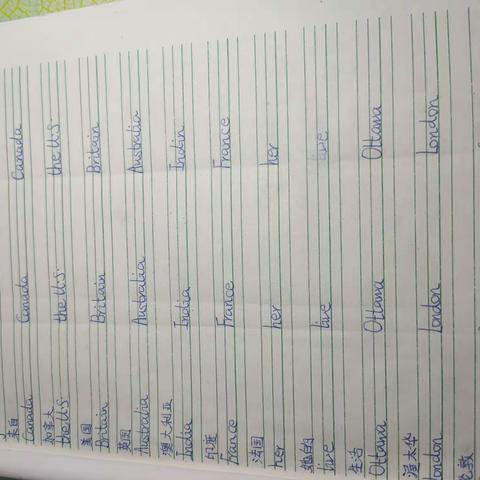 来自
Canada Canada Canada
加拿大
the U.S. the U.S. the U.S.
美国
Britain Britain Britain
英国
Australia Australia Australia
澳大利亚
India India Indin
印度
France France France
法国
her her her
她的
live live live
生活
Ottawa Ottawa Ottawa
渥太华
London London London
伦敦